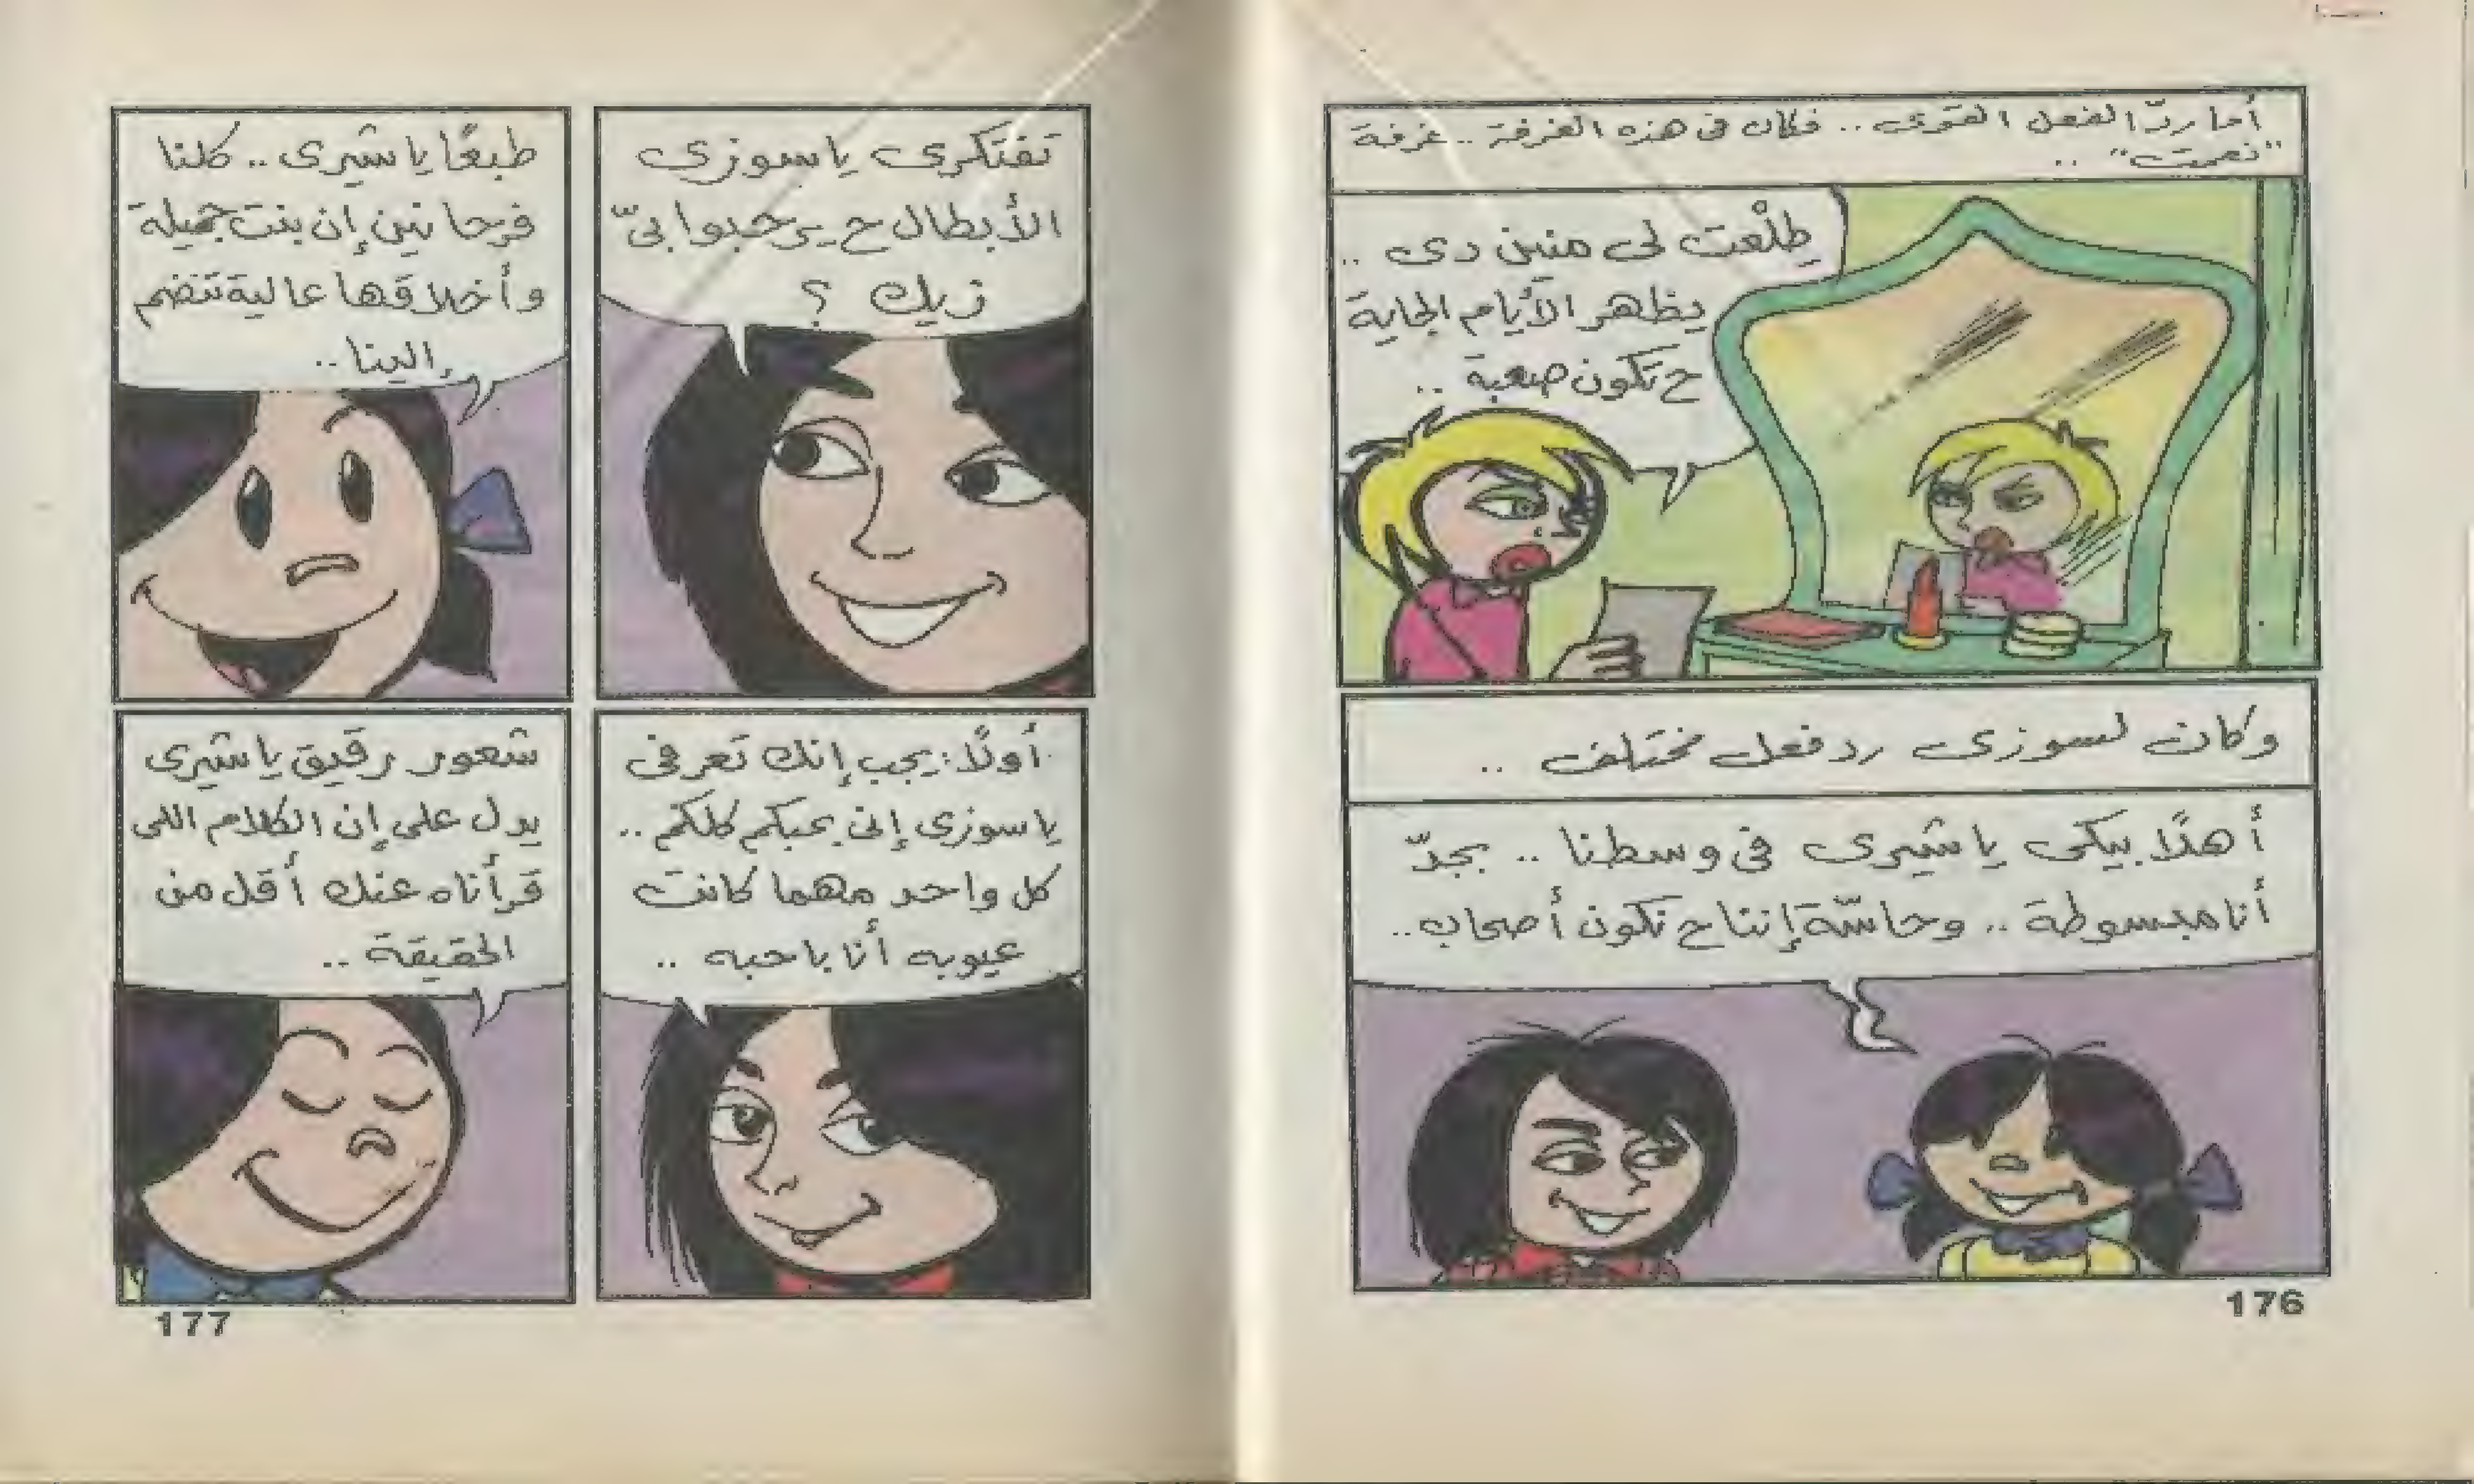 أما ردّ الفعل القوى .. فكان فى هذه الغرفة .. غرفة
"نعمت" ..
طِلْعت لى منين دى ..
يظهر الأيام الجاية
ح تكون صعبة ..
وكان لسوزى رد فعل مختلف ..
أهلاً بيكى يا شيرى فى وسطنا .. بجدّ
أنا مبسوطة .. وحاسّة إننا ح نكون أصحاب ..
176
تفتكرى يا سوزى
الأبطال ح يرحبوا بىّ
زيك ؟
طبعًا يا شيرى .. كلنا
فرحانين إن بنت جميلة
وأخلاقها عالية تنضم
إلينا ..
أولاً : يجب إنك تعرفى
يا سوزى إنى بحبكم كلكم ..
كل واحد مهما كانت
عيوبه أنا باحبه ..
شعور رقيق يا شيرى
يدل على إن الكلام اللى
قرأناه عنك أقل من
الحقيقة ..
177